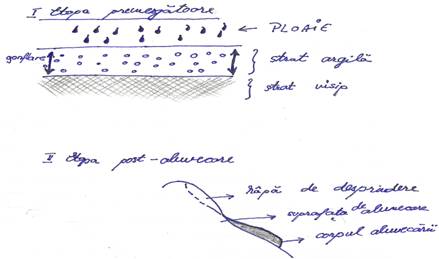 I Etapa premergătoare
PLOAIE
gonflare
strat argilă
strat nisip
II Etapa post-alunecare
râpă de desprindere
suprafața de alunecare
corpul alunecării